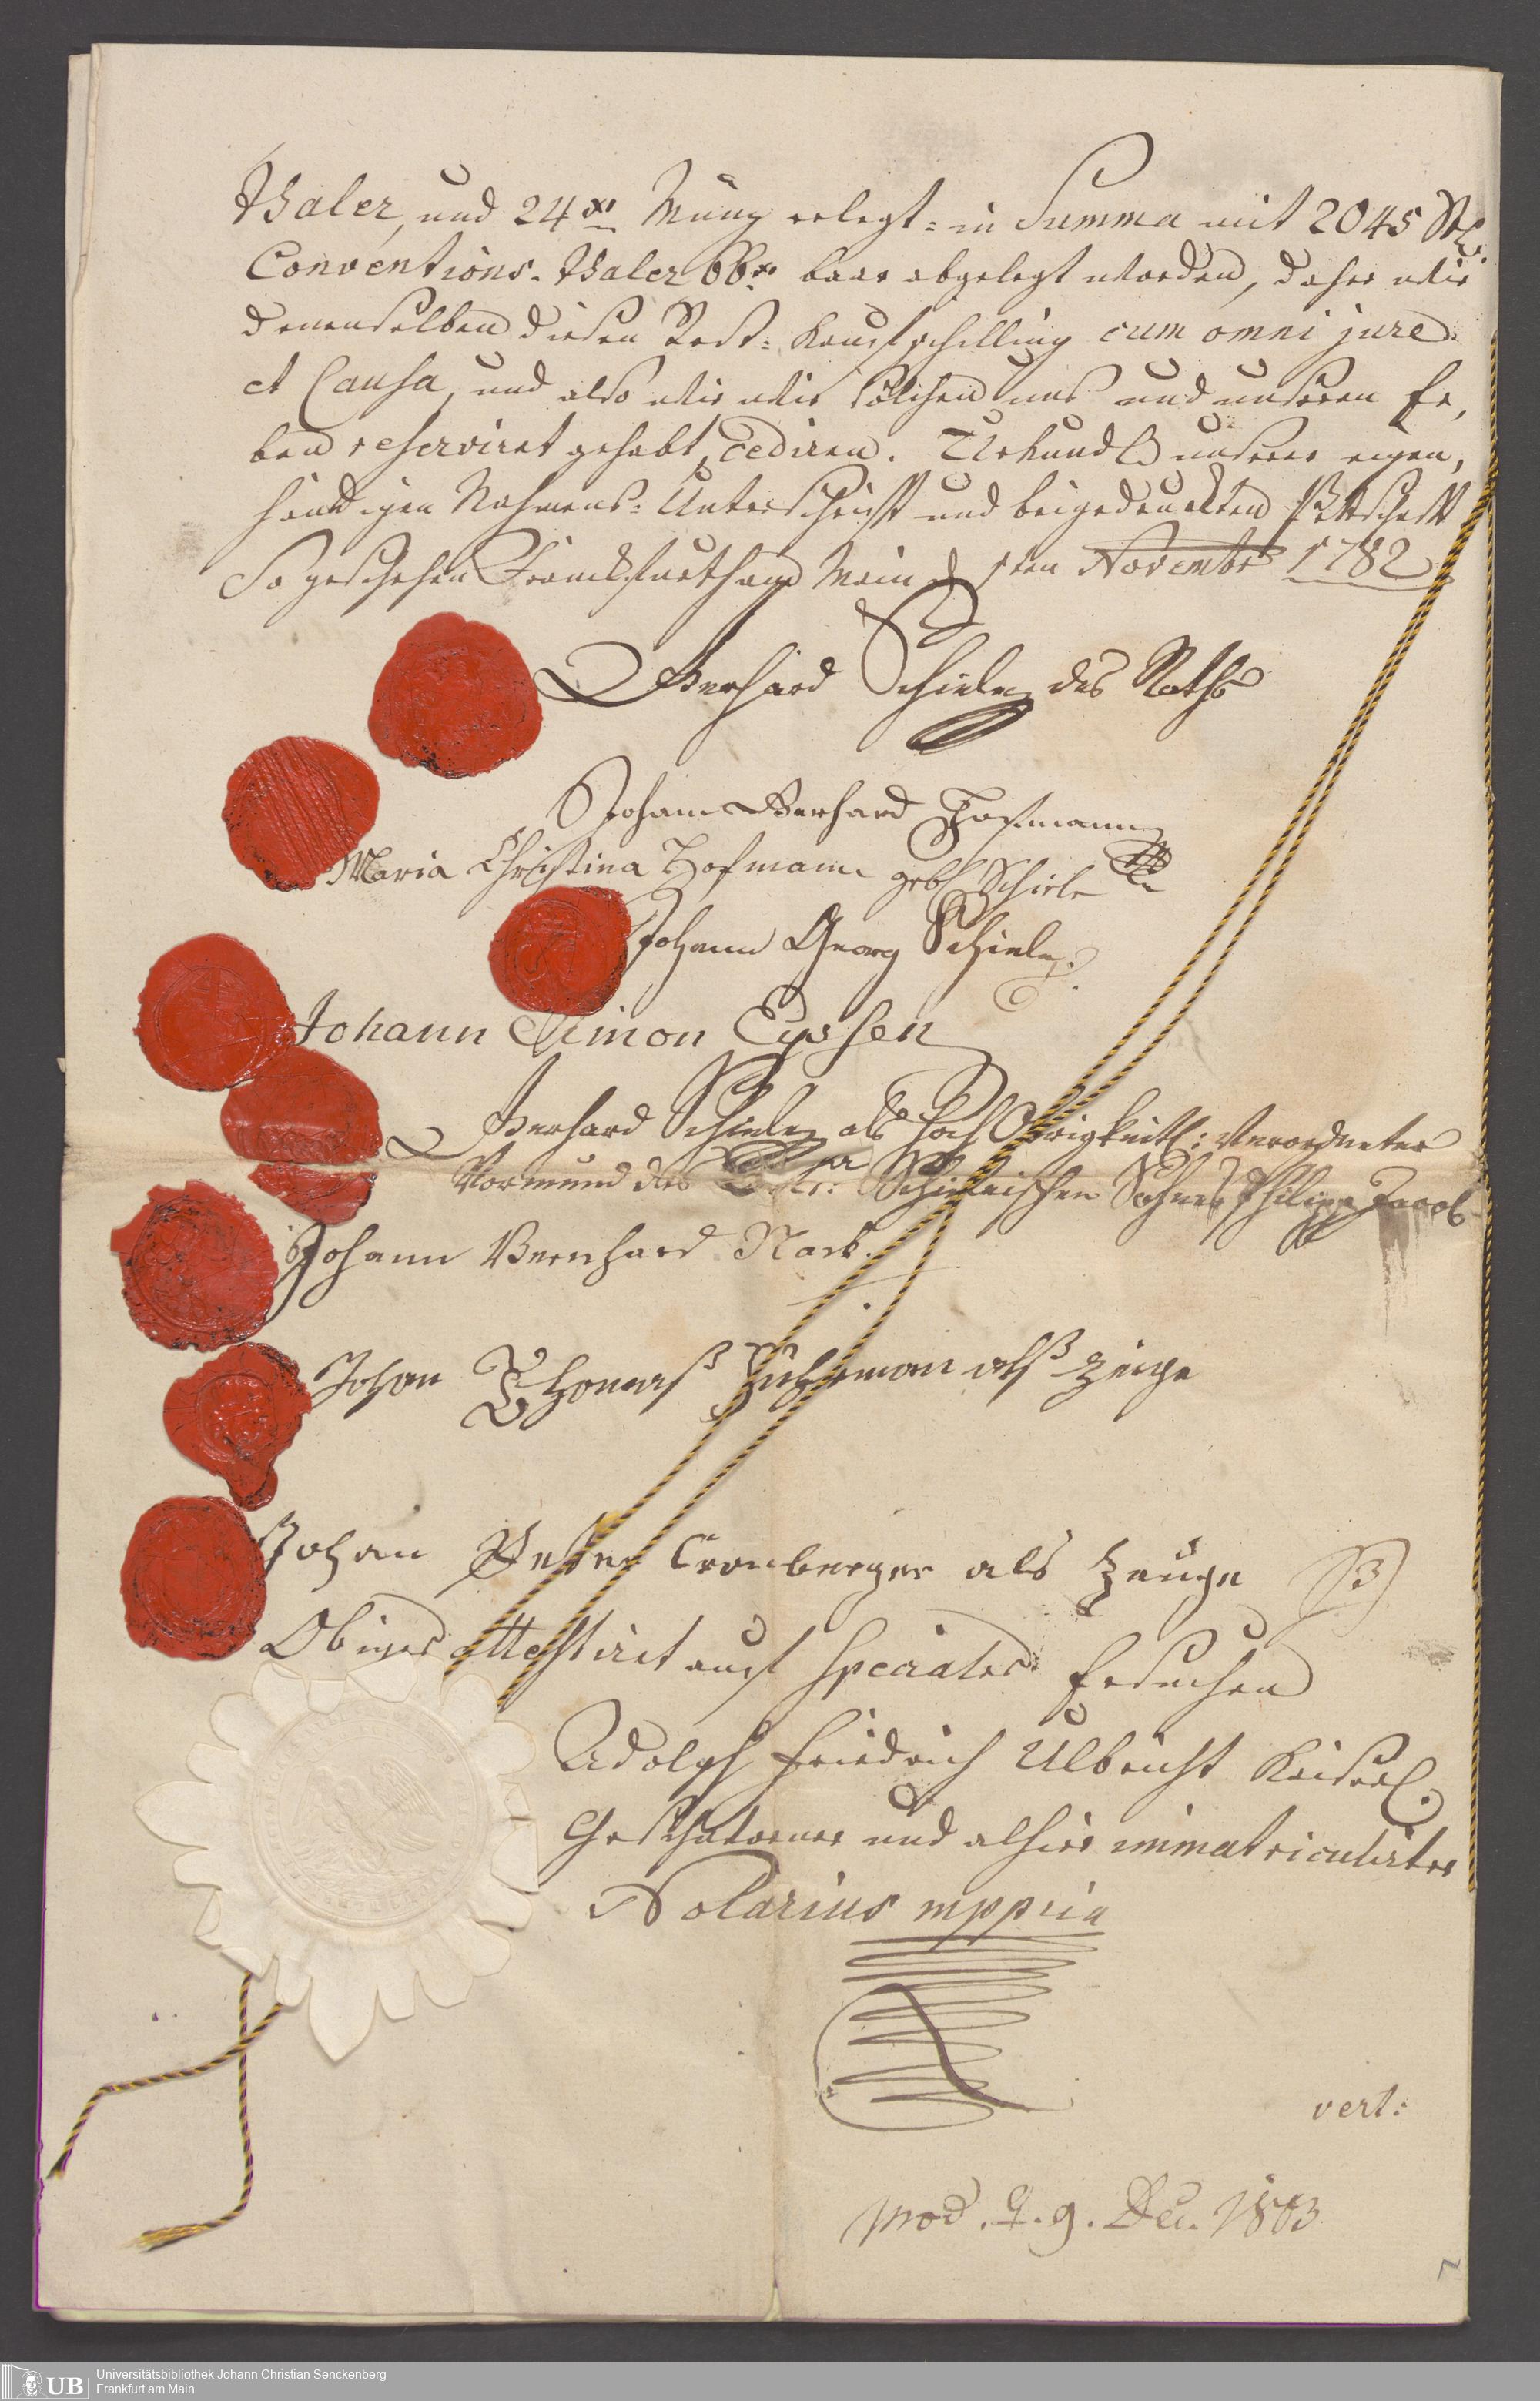 Thaler, und 24 xr Müntz erlegt = in Summa mit 2045 Stk.
Conventions-Thaler 66 xr baar abgelegt worden, daher wir
denenselben diesen Rest = Kaufschilling cum omni jure
et Causa, und also wie wir solchen uns und unseren Er,
ben reserviret gehabt, cediren. Urkundl. unserer eigen,
händigen Nahmens = Unterschrifft und beigedruckten Pettschafft
So geschehen Franckfurth am Mayn d. 1ten Novembr 1782
Gerhard Schiele des Raths
Johann Gerhard Hofmann
Maria Christina Hofmann geb. Schiele
Johann Georg Schiele.
Johann Simon Eyssen
Gerhard Schiele als hoch Obrigkeitl: Verordneter
Vormund des Schieleischen Sohnes Philipp Jacob
Johann Bernhard Nack.
Johan Thomas als Zeuge
Johan Peter Cronberger als Zeuge
Obiges attestiret auf speciales Ersuchen
Adolph Friedrich Ulbricht Keiserl.
Geschworner und alhier immatriculirter
Notarius mppria
vert:
mod. 9. Dec. 1803
Universitätsbibliothek Johann Christian Senckenberg
UB Frankfurt am Main